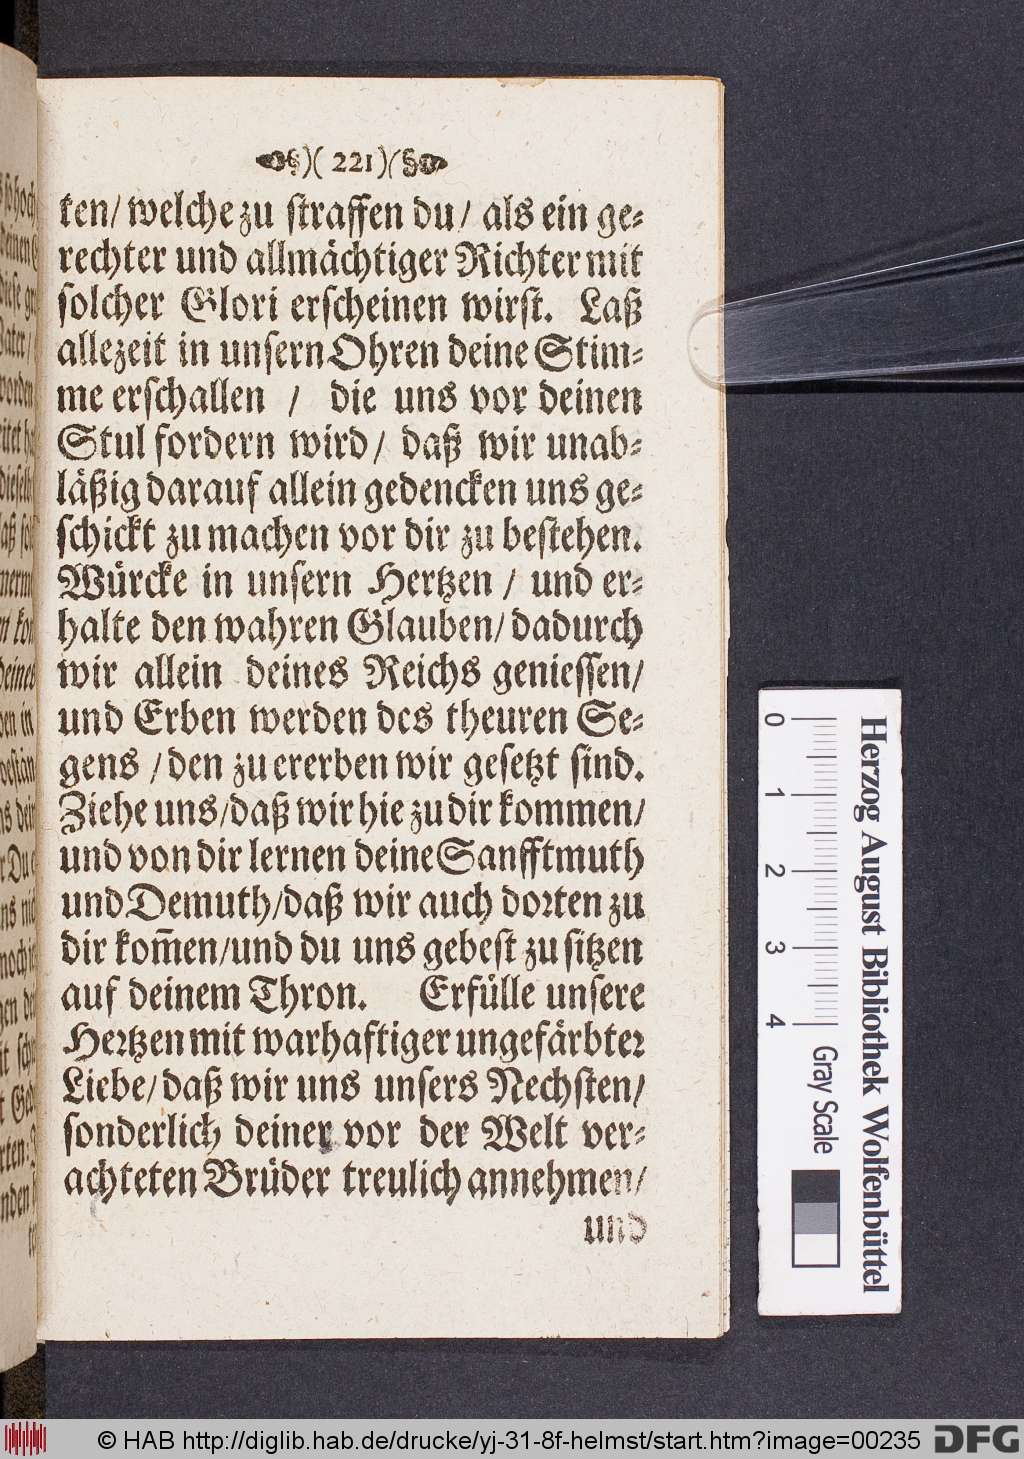 )( 221 )(
ken/ welche zu straffen du/ als ein ge⸗
rechter und allmächtiger Richter mit
solcher Glori erscheinen wirst. Laß
allezeit in unsern Ohren deine Stim⸗
me erschallen / die uns vor deinen
Stul fordern wird/ daß wir unab⸗
läßig darauf allein gedencken uns ge⸗
schickt zu machen vor dir zu bestehen.
Würcke in unsern Hertzen / und er⸗
halte den wahren Glauben/ dadurch
wir allein deines Reichs geniessen/
und Erben werden des theuren Se⸗
gens / den zu ererben wir gesetzt sind.
Ziehe uns/daß wir hie zu dir kommen/
und von dir lernen deine Sanfftmuth
und Demuth/daß wir auch dorten zu
dir kom̃en/und du uns gebest zu sitzen
auf deinem Thron. Erfülle unsere
Hertzen mit warhaftiger ungefärbter
Liebe/ daß wir uns unsers Nechsten/
sonderlich deiner vor der Welt ver⸗
achteten Brüder treulich annehmen/
und
Herzog August Bibliothek Wolfenbüttel
0 1 2 3 4 Gray Scale
© HAB http://diglib.hab.de/drucke/yj-31-8f-helmst/start.htm?image=00235
DFG